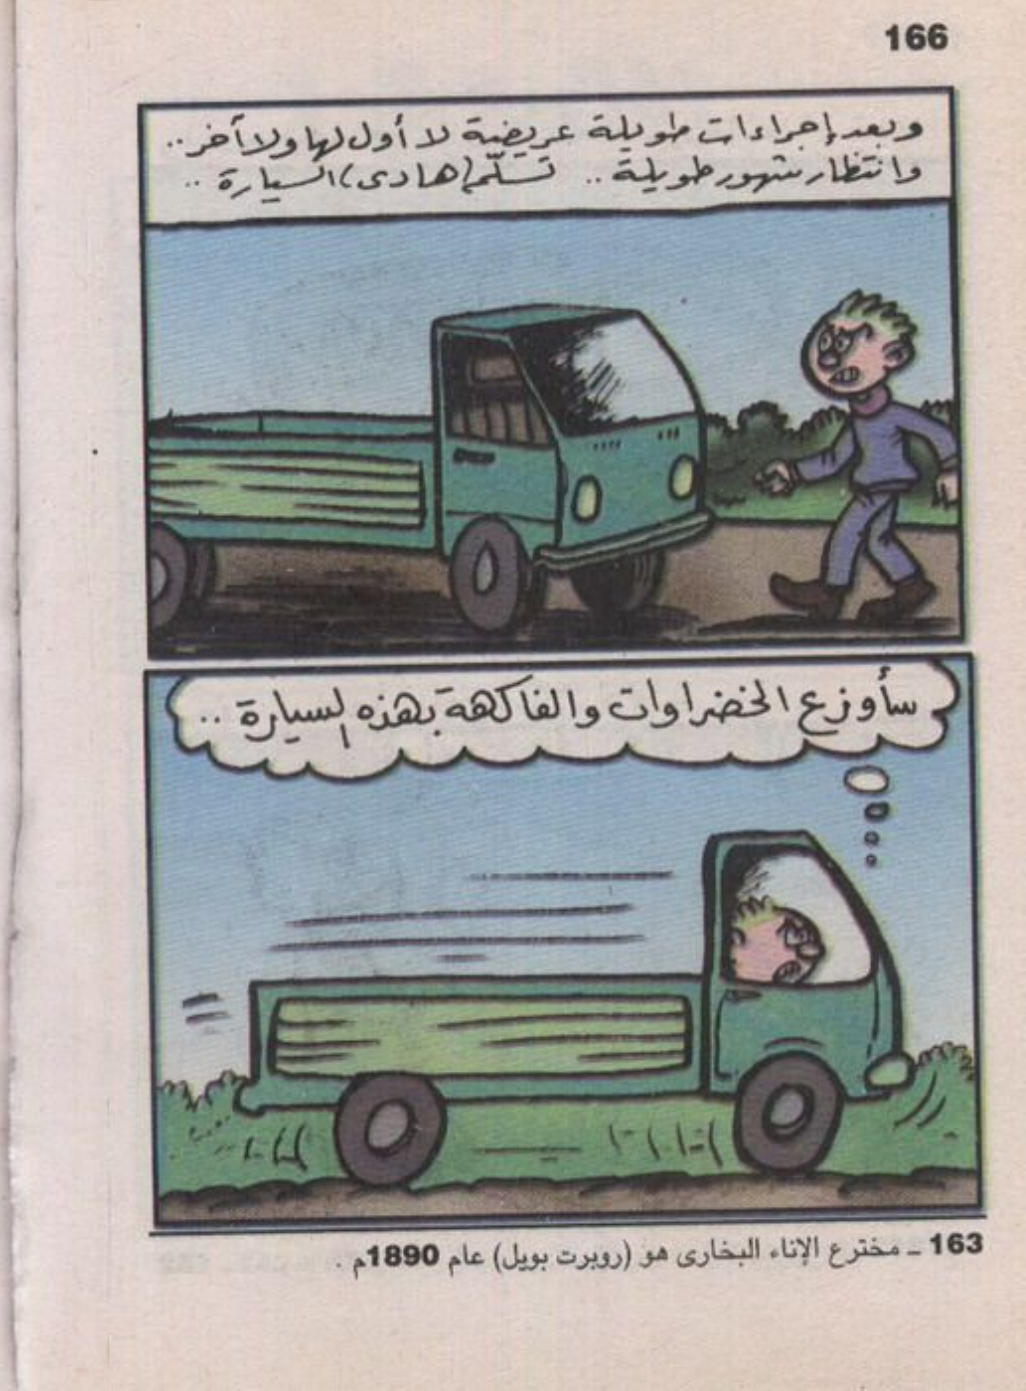 166
وبعد إجراءات طويلة عريضة لا أول لها ولا آخر..
وانتظار شهور طويلة .. تسلّم (هادى) السيارة ..
سأوزع الخضراوات والفاكهة بهذه السيارة ..
163 ـ مخترع الإناء البخارى هو (روبرت بويل) عام 1890م .